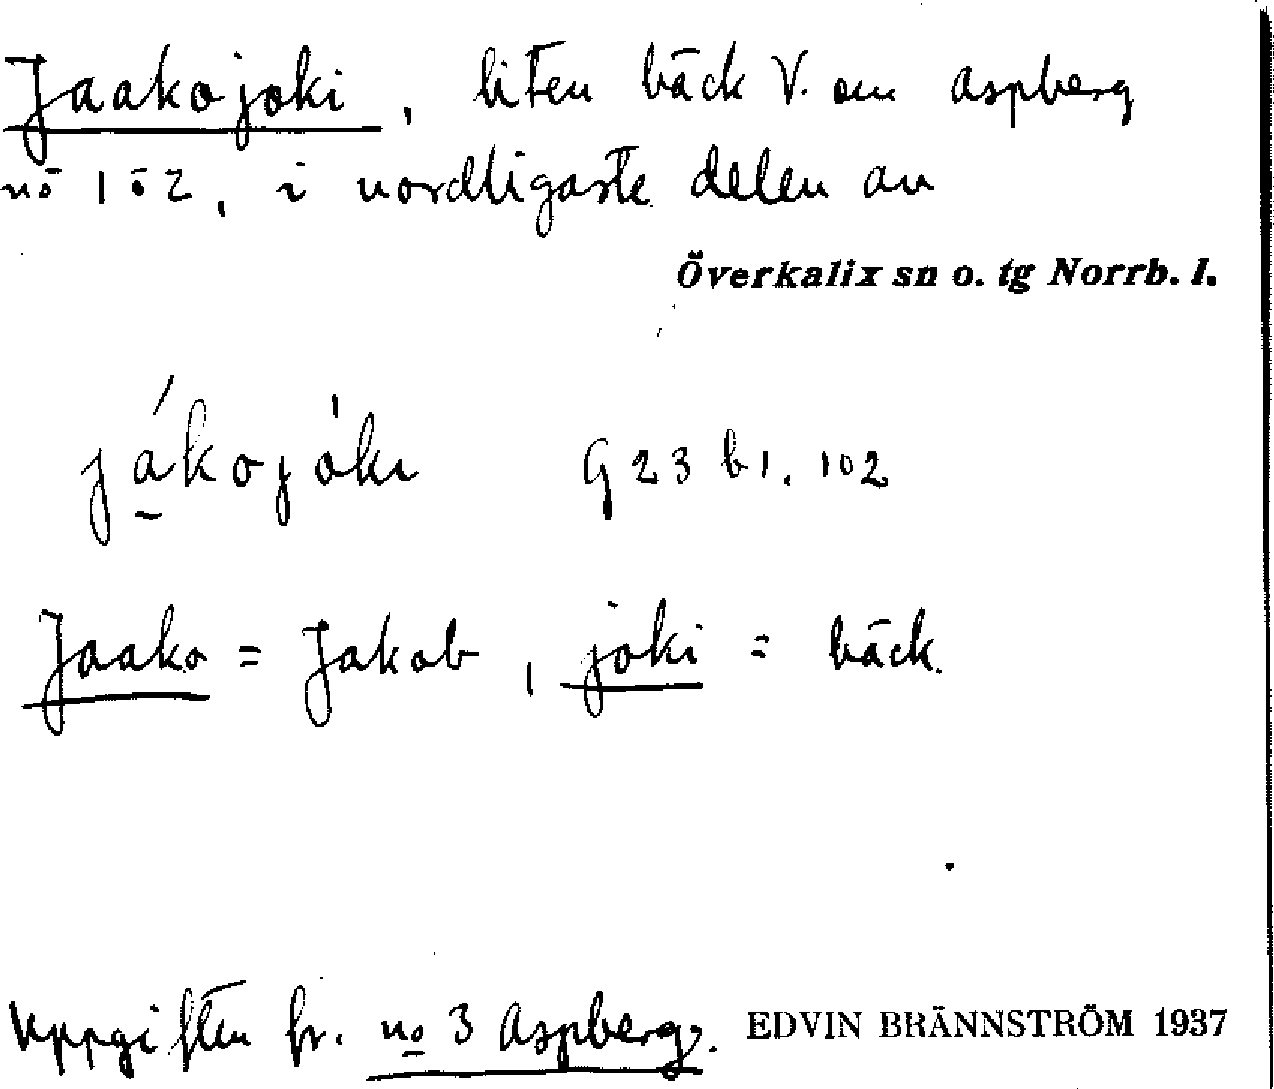 Jaakojoki, liten bäck V. om Aspberg
no 1 o 2, i nordligaste delen av
Överkalix sn o. tg Norrb. l.
jákojóki G 23 bl. 102
Jaako = Jakob, joki = bäck.
Uppgiften fr. no 3 Aspberg. EDVIN BRÄNNSTRÖM 1937